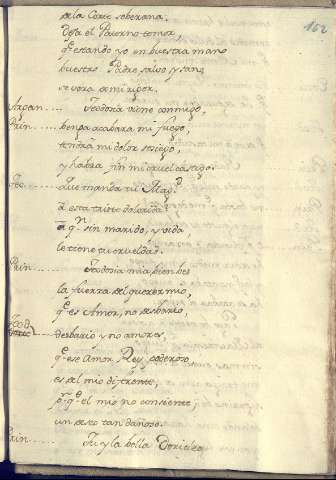 de la Corte soberana.
162
Deja el Paterno temor,
q.e estando yo en buestra mano
buestro Padre, salvo y sano,
se vera de mi rigor.
Teodosia viene conmigo,
Prin.... benga acabara mi fuego,
tendra mi dolor sosiego,
y habra fin mi cruel castigo.
Teo.... Que manda tu Mag.d
a esta triste dolorida?
a q.n sin marido, y vida,
le tiene tu crueldad.
Prin.... Teodosia mia bien bes
la fuerza del querer mio,
q.e es Amor, no desbario,
Teod
desbario y no amores,
q.e ese Amor Rey poderoso
es del mio diferente,
p.r q.e el mio no consiente,
un deseo tan dañoso.
Prin.... Tu y la bella